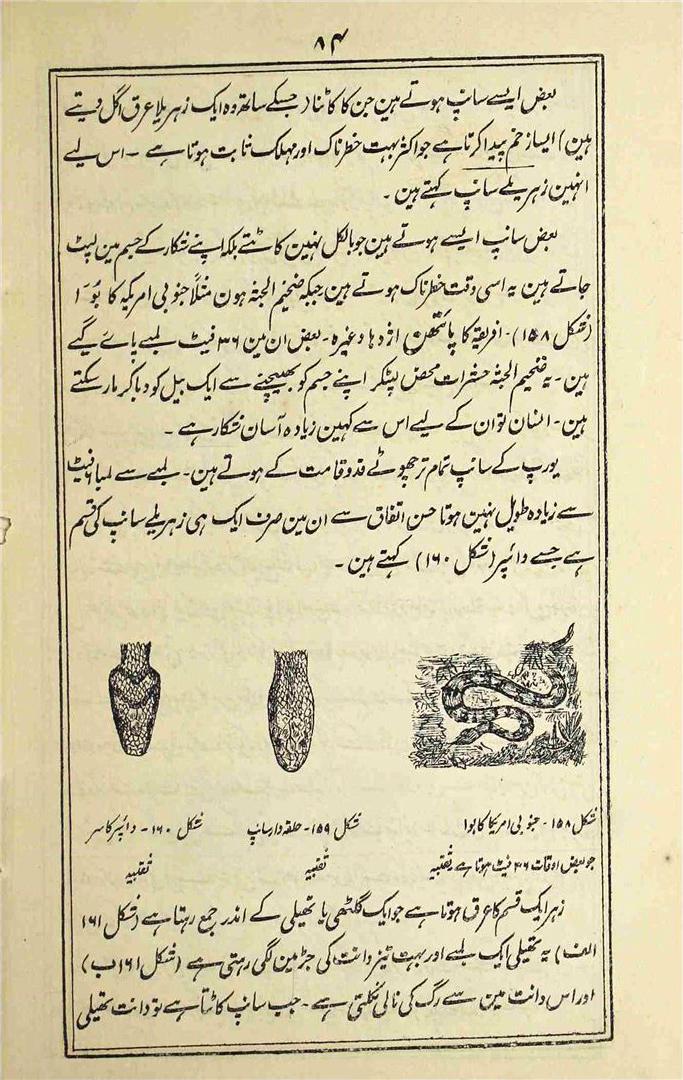 ۸۴
بعض ایسے سانپ ہوتے ہین جن کا کاٹنا (جسکے ساتھ وہ ایک زہریلا عرق اگل دیتے
ہین) ایسا زخم پیدا کرتا ہے جو اکثر بہت خطرناک اور مہلک ثابت ہوتا ہے ۔ اس لیے
انہین زہریلے سانپ کہتے ہین ۔
بعض سانپ ایسے ہوتے ہین جو بالکل نہین کاٹتے بلکہ اپنے شکار کے جسم مین لپٹ
جاتے ہین یہ اسی وقت خطرناک ہوتے ہین جبکہ ضخیم الجثہ ہون مثلاً جنوبی امریکہ کا بُوَ ۔ ا
(شکل ۱۵۸)۔ افریقہ کا پائتھن اژدہا وغیرہ ۔ بعض ان مین ۳۶ فیٹ لمبے پائے گیے
ہین ۔ یہ ضخیم الجثہ حشرات محض لپٹکر اپنے جسم کو بھینچنے سے ایک بیل کو دبا کر مار سکتے
ہین ۔ انسان تو ان کے لیے اس سے کہین زیادہ آسان شکار ہے ۔
یورپ کے سانپ تمام تر چھوٹے قد و قامت کے ہوتے ہین ۔ لمبے سے لمبا ۶ فیٹ
سے زیادہ طویل نہین ہوتا حسن اتفاق سے ان مین صرف ایک ہی زہریلے سانپ کی قسم
ہے جسے وائپر (شکل ۱۶۰) کہتے ہین ۔
شکل ۱۵۸ ۔ جنوبی امریکا کا بوا
جو بعض اوقات ۳۶ فیٹ ہوتا ہے ثُقبیہ
شکل ۱۵۹ ۔ حلقہ دار سانپ
ثُقبیہ
شکل ۱۶۰ ۔ وائپر کا سر
ثُقبیہ
زہر ایک قسم کا عرق ہوتا ہے جو ایک گلٹھی یا تھیلی کے اندر جمع رہتا ہے (شکل ۱۶۱
الف) یہ تھیلی ایک لمبے اور بہت تیز دانت کی جڑ مین لگی رہتی ہے (شکل ۱۶۱ ب)
اور اس دانت مین سے رگ کی نالی نکلتی ہے ۔ جب سانپ کاٹتا ہے تو دانت تھیلی